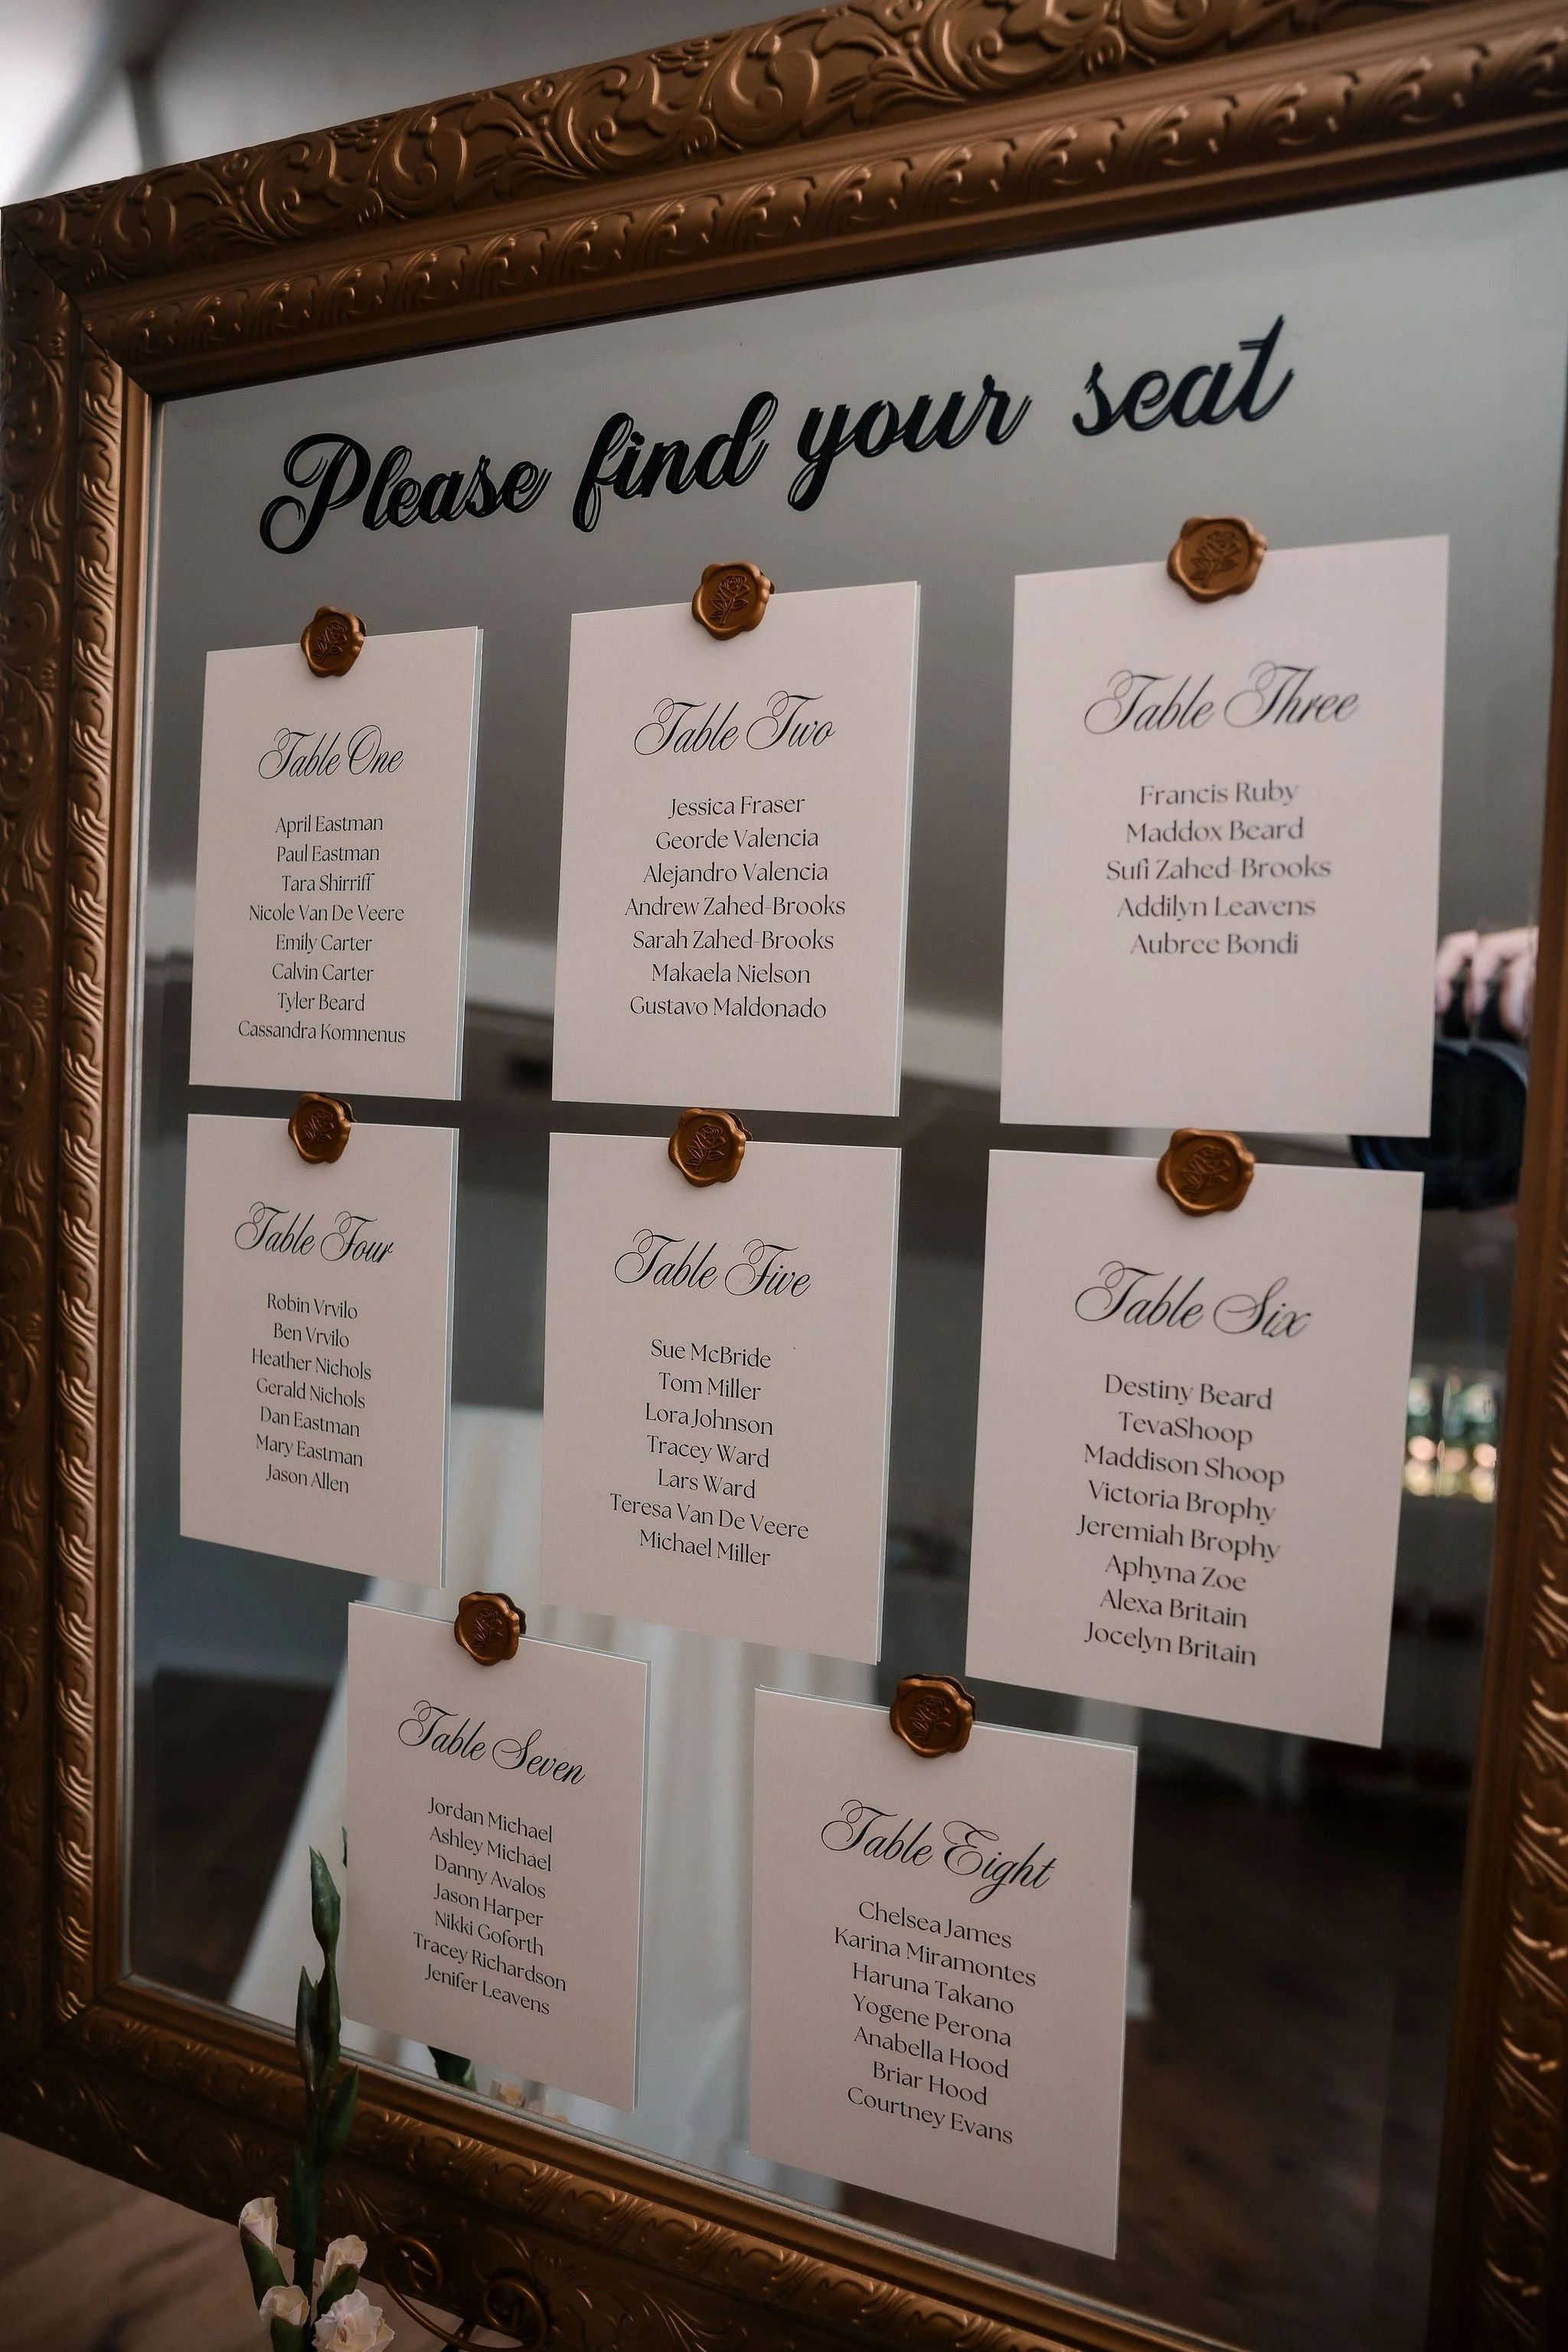 Please find your seat
Table One
April Eastman
Paul Eastman
Tara Shirriff
Nicole Van De Veere
Emily Carter
Calvin Carter
Tyler Beard
Cassandra Komnenus
Table Two
Jessica Fraser
Georde Valencia
Alejandro Valencia
Andrew Zahed-Brooks
Sarah Zahed-Brooks
Makaela Nielson
Gustavo Maldonado
Table Three
Francis Ruby
Maddox Beard
Sufi Zahed-Brooks
Addilyn Leavens
Aubree Bondi
Table Four
Robin Vrvilo
Ben Vrvilo
Heather Nichols
Gerald Nichols
Dan Eastman
Mary Eastman
Jason Allen
Table Five
Sue McBride
Tom Miller
Lora Johnson
Tracey Ward
Lars Ward
Teresa Van De Veere
Michael Miller
Table Six
Destiny Beard
TevaShoop
Maddison Shoop
Victoria Brophy
Jeremiah Brophy
Aphyna Zoe
Alexa Britain
Jocelyn Britain
Table Seven
Jordan Michael
Ashley Michael
Danny Avalos
Jason Harper
Nikki Goforth
Tracey Richardson
Jenifer Leavens
Table Eight
Chelsea James
Karina Miramontes
Haruna Takano
Yogene Perona
Anabella Hood
Briar Hood
Courtney Evans